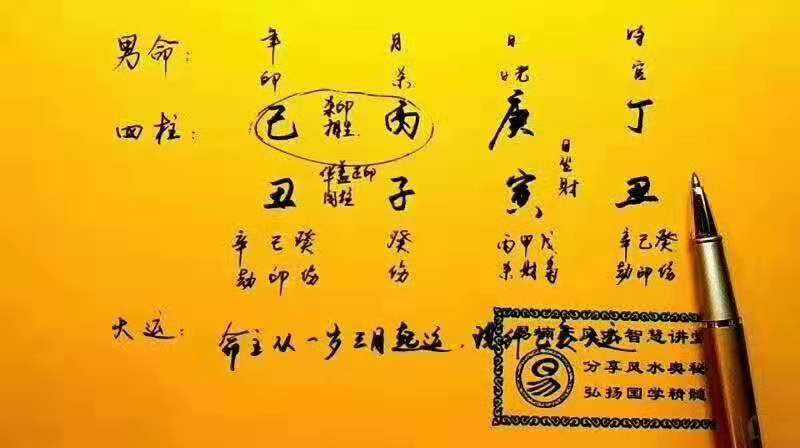 男命： 年 月 日 时
印 杀 元 官
四柱： 己 杀印相生 丙 庚 丁
丑 华盖正印同柱 子 寅 日坐财 丑
辛己癸 癸 丙甲戊 辛己癸
劫印伤 伤 杀财枭 劫印伤
大运： 命主从一岁三月起运，
风水智慧讲堂
分享风水奥秘
弘扬国学精髓
易